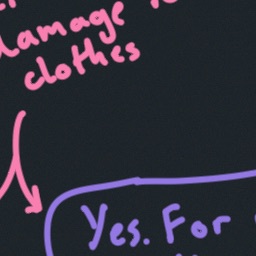 damage
clothes
Yes. For